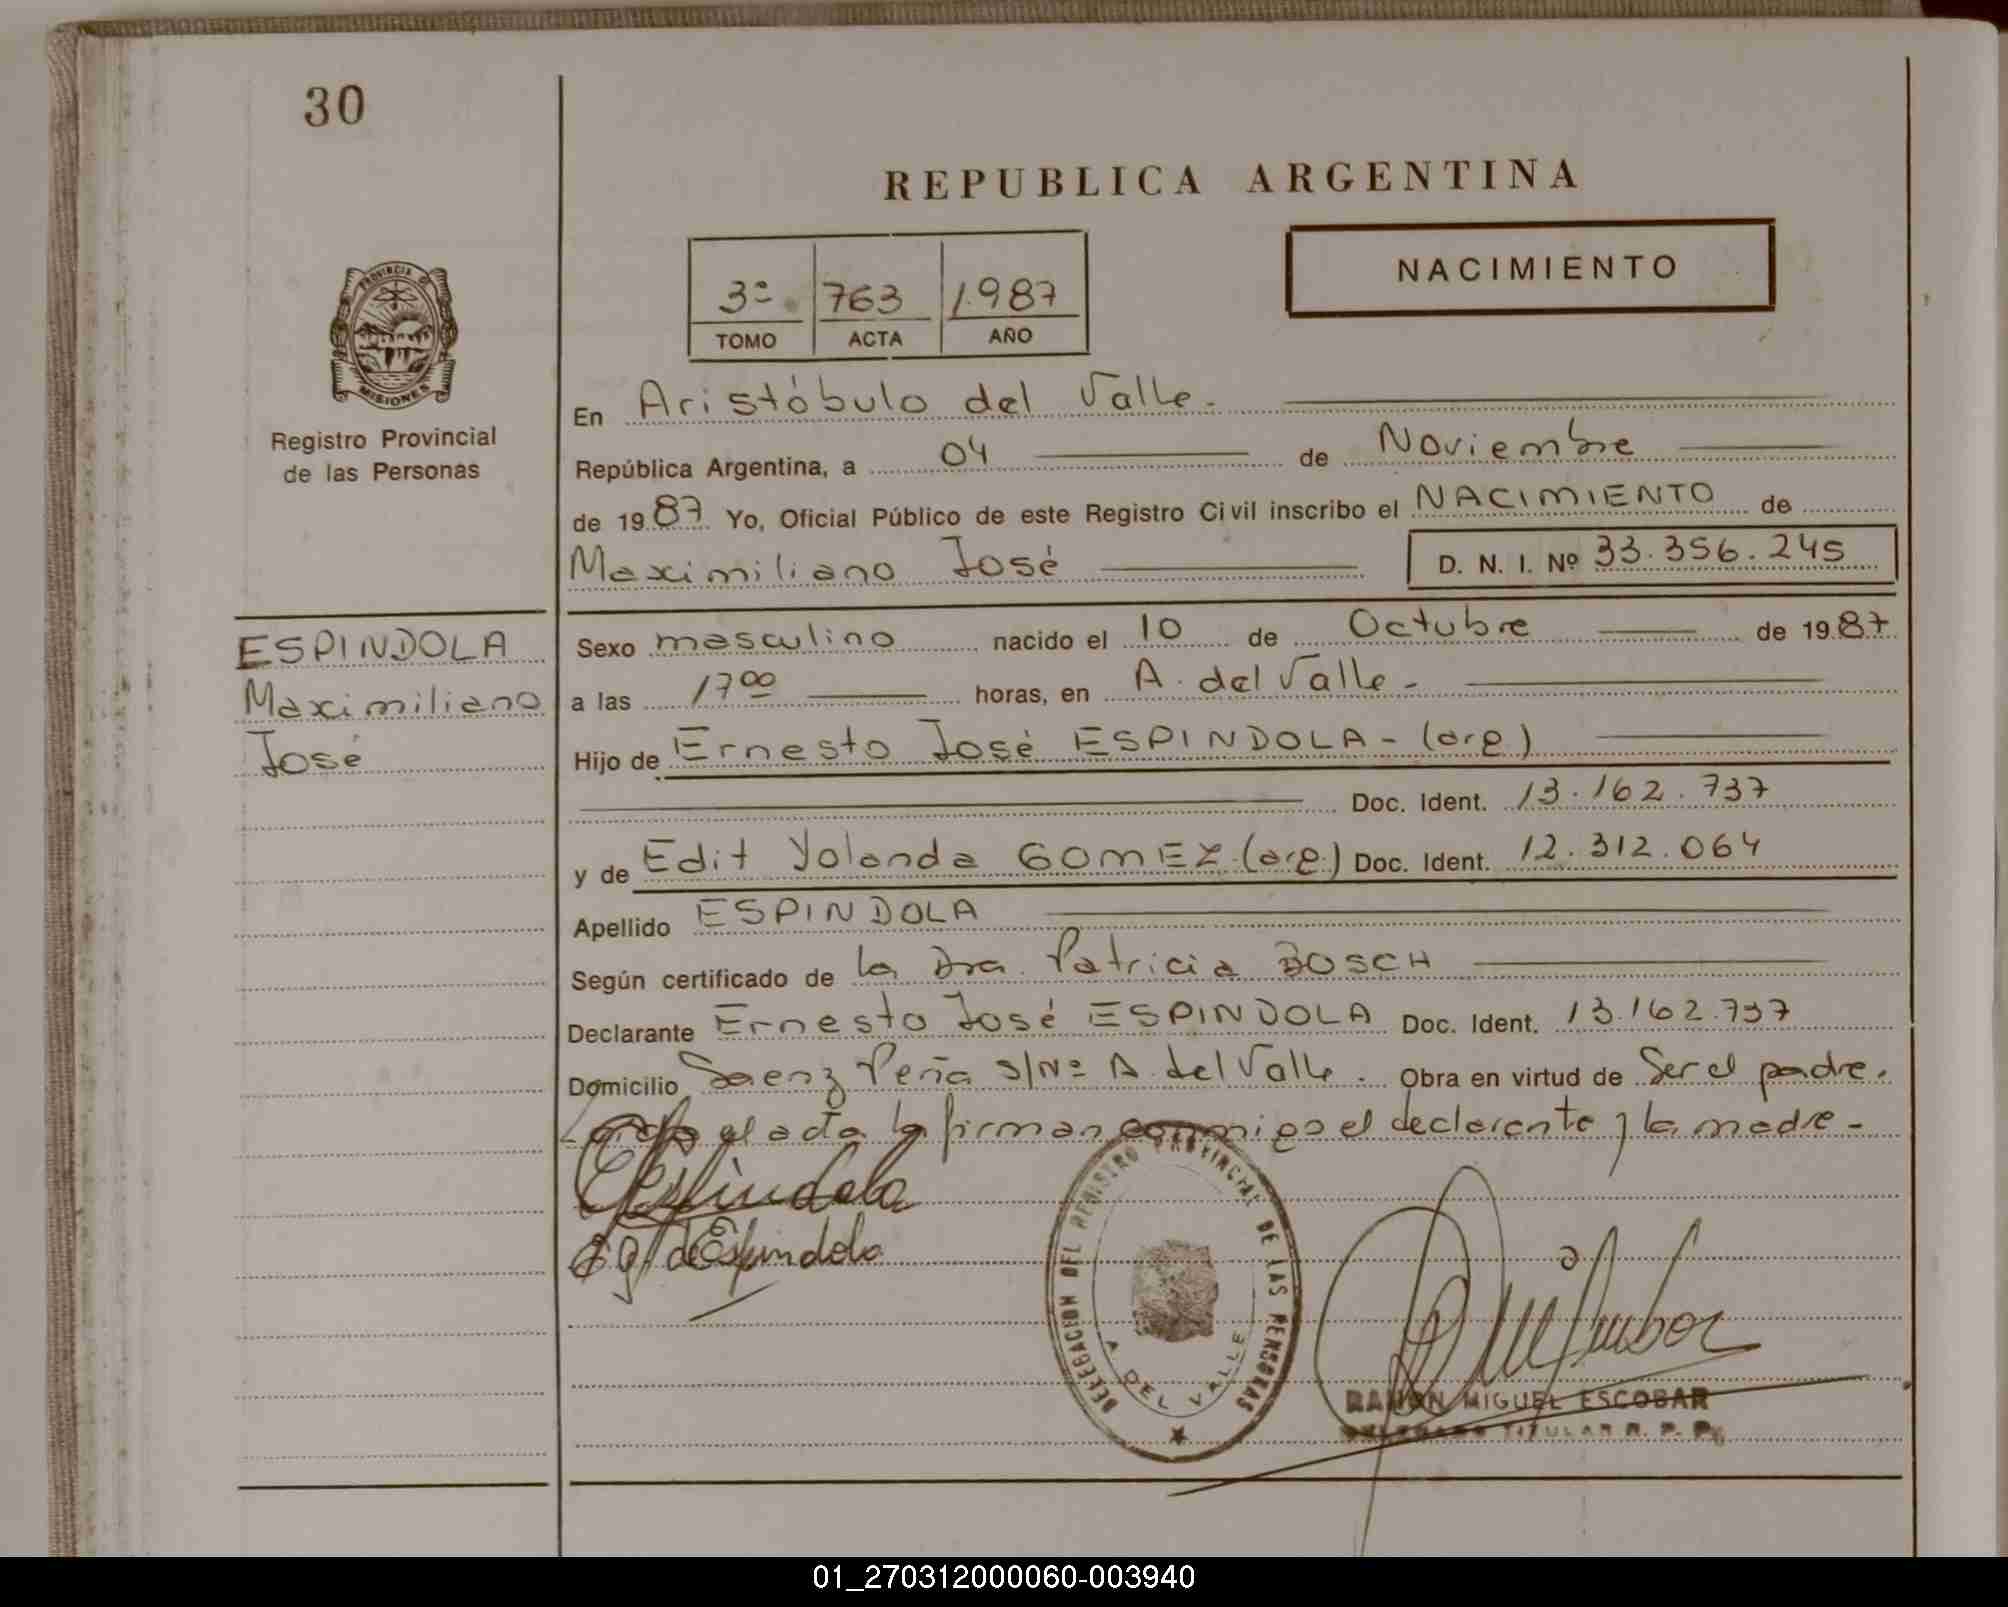 30
REPUBLICA ARGENTINA
NACIMIENTO
3º 763 1.987
TOMO ACTA AÑO
PROVINCIA DE
MISIONES
Registro Provincial
de las Personas
En Aristóbulo del Valle.-
República Argentina, a 04 de Noviembre
de 1987 Yo, Oficial Público de este Registro Civil inscribo el NACIMIENTO de
Maximiliano José D. N. I. Nº 33.356.245
ESPINDOLA
Maximiliano
José
Sexo masculino nacido el 10 de Octubre de 1987
a las 17 00 horas, en A. del Valle.-
Hijo de Ernesto José ESPINDOLA - (arg)
Doc. Ident. 13.162.737
y de Edit Yolanda GOMEZ (arg.) Doc. Ident. 12.312.064
Apellido ESPINDOLA
Según certificado de la Dra. Patricia BOSCH
Declarante Ernesto José ESPINDOLA Doc. Ident. 13.162.737
Domicilio Saenz Peña S/Nº A. del Valle. Obra en virtud de Ser el padre.
el acta la firman conmigo el declarante y la madre.-
Espindola
de Espindola
DELEGACION DEL REGISTRO PROVINCIAL DE LAS PERSONAS
A. DEL VALLE
RAMON MIGUEL ESCOBAR
DELEGADO TITULAR R. P. P.
01_270312000060-003940